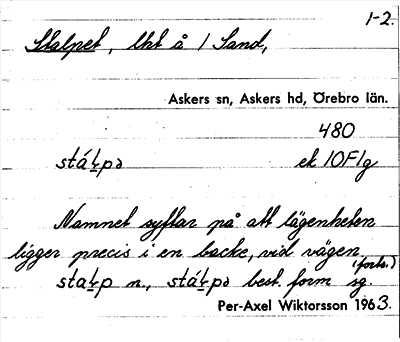 1-2.
Stalpet, lht å 1 Sand,
Askers sn, Askers hd, Örebro län.
480
stáꞎpə ek 10F1g
Namnet syftar på att lägenheten
ligger precis i en backe, vid vägen.
(forts.)
staꞎp n., stáꞎpə best. form sg.
Per-Axel Wiktorsson 1963.